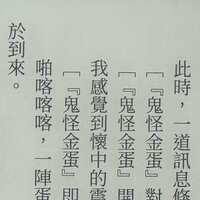 此時，一道訊息
［『鬼怪金蛋』對
［『鬼怪金蛋』開
我感覺到懷中的震
［『鬼怪金蛋』即
啪喀喀喀，一陣蛋
於到來。